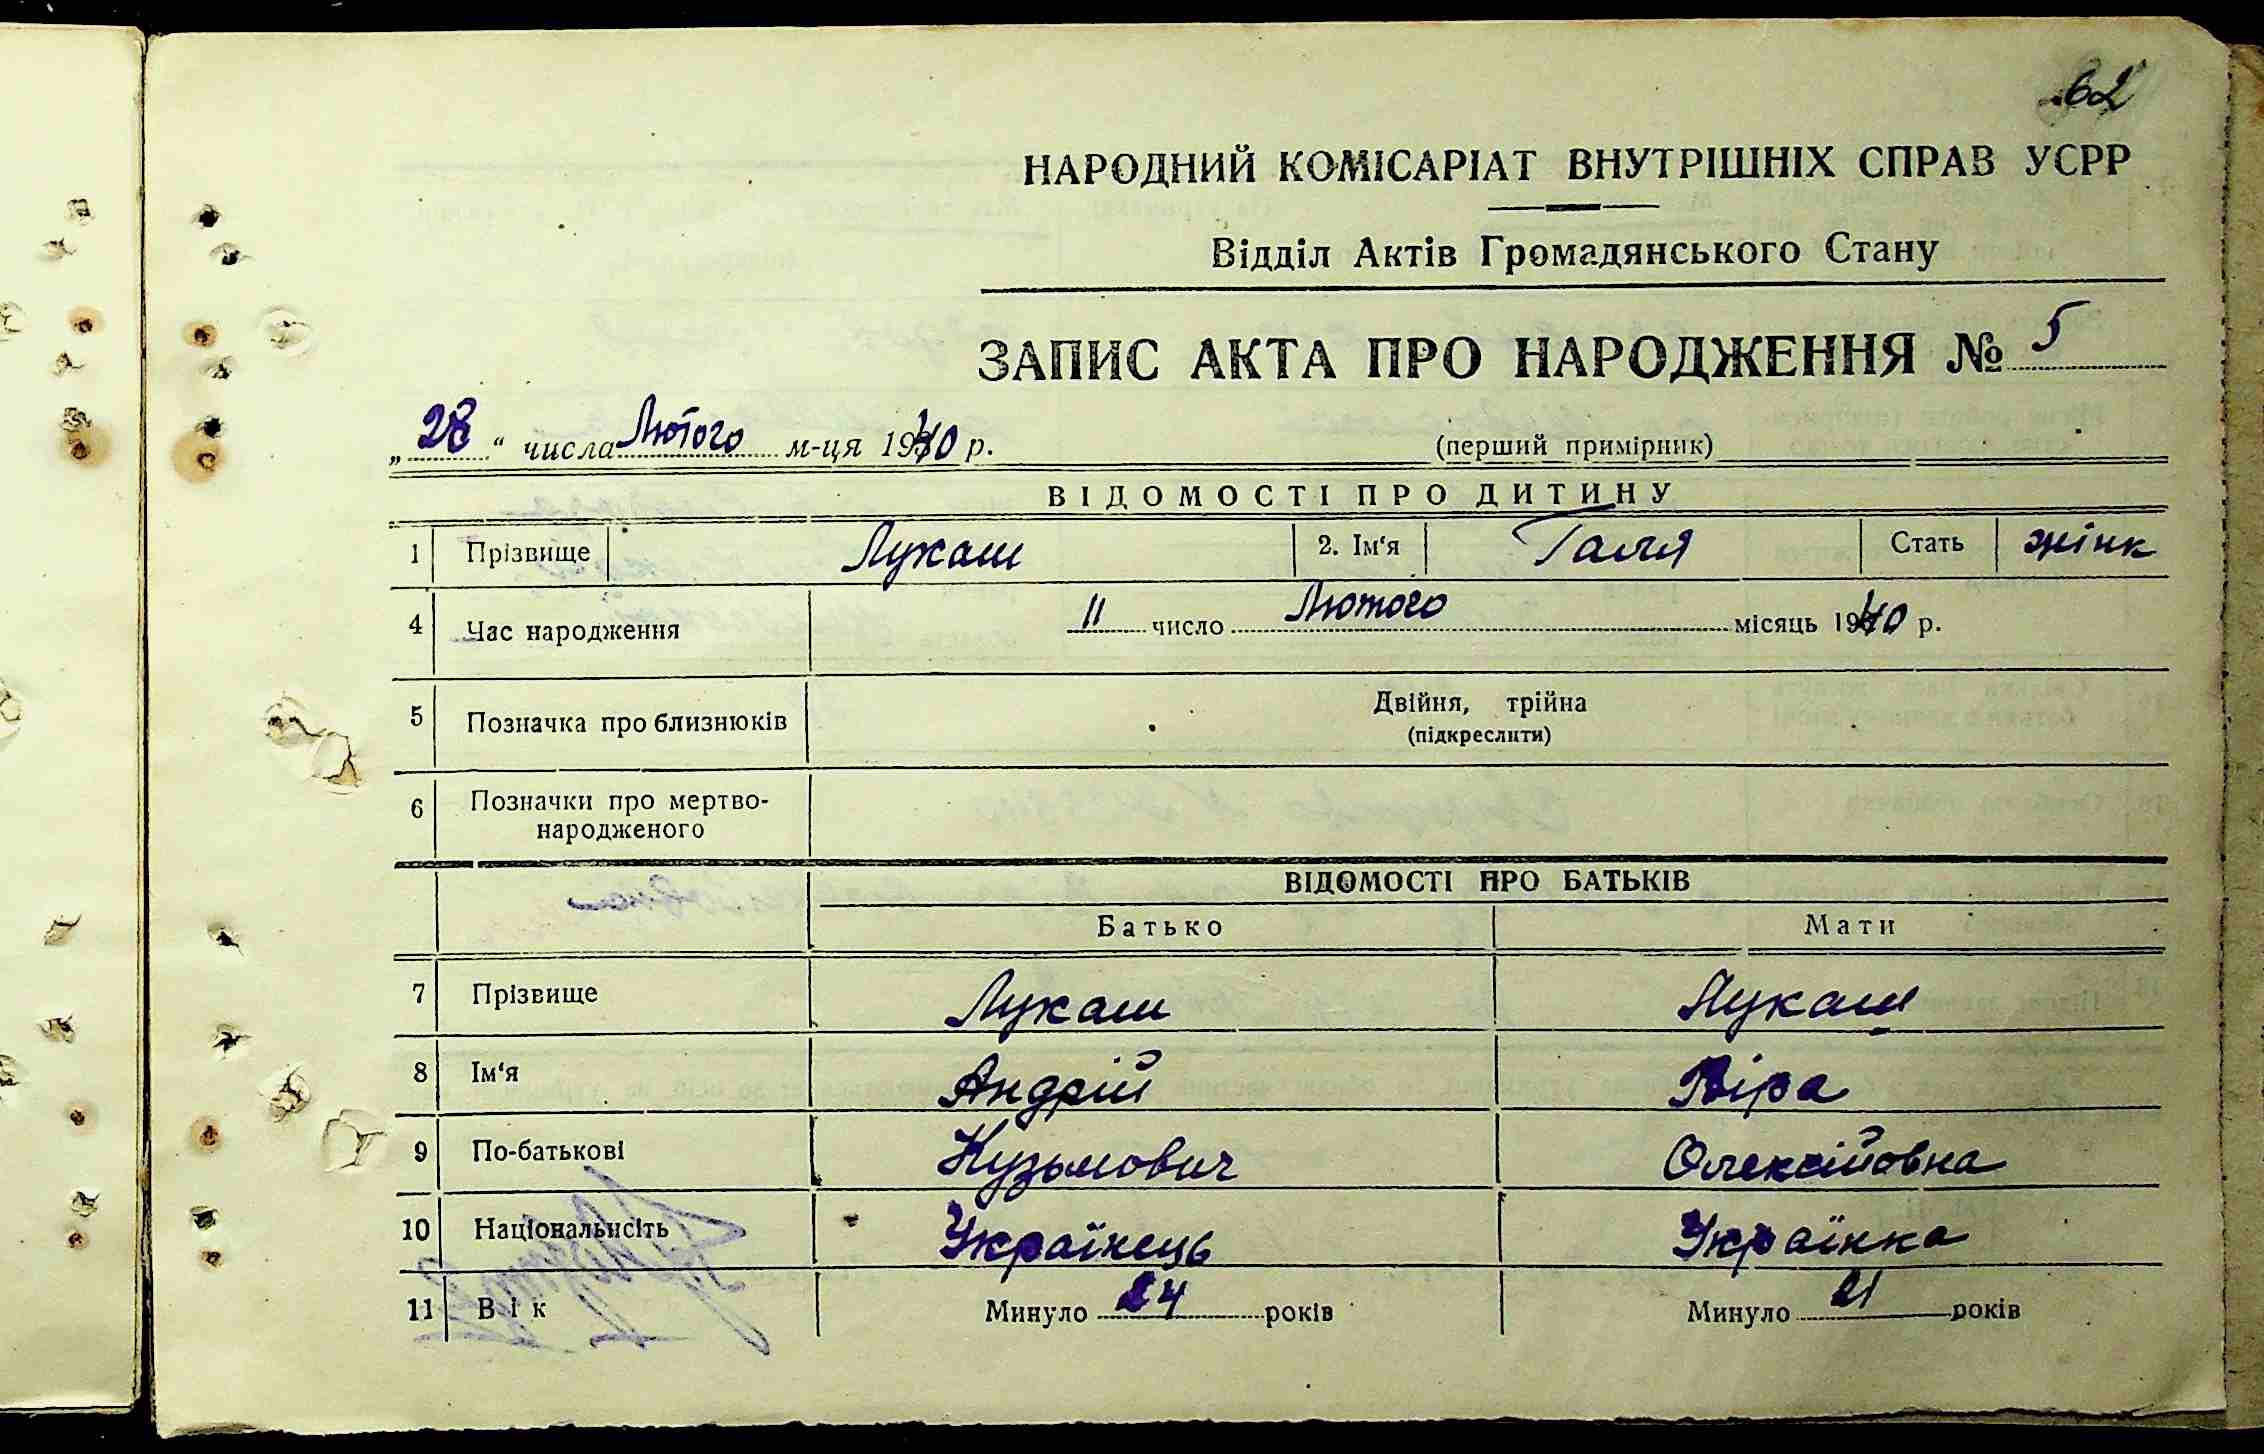 62
НАРОДНИЙ КОМІСАРІАТ ВНУТРІШНІХ СПРАВ УСРР
Відділ Актів Громадянського Стану
ЗАПИС АКТА ПРО НАРОДЖЕННЯ № 5
„28“ числа Лютого м-ця 1940 р. (перший примірник)
ВІДОМОСТІ ПРО ДИТИНУ
1 Прізвище Лукаш 2. Ім‘я Галя Стать жінк
4 Час народження 11 число Лютого місяць 1940 р.
5 Позначка про близнюків Двійня, трійна
(підкреслити)
6 Позначки про мертво-
народженого
ВІДОМОСТІ ПРО БАТЬКІВ
Батько Мати
7 Прізвище Лукаш Лукаш
8 Ім‘я Андрій Віра
9 По-батькові Кузьмович Олексійовна
10 Національність Українець Українка
11 Вік Минуло 24 років Минуло 21 років